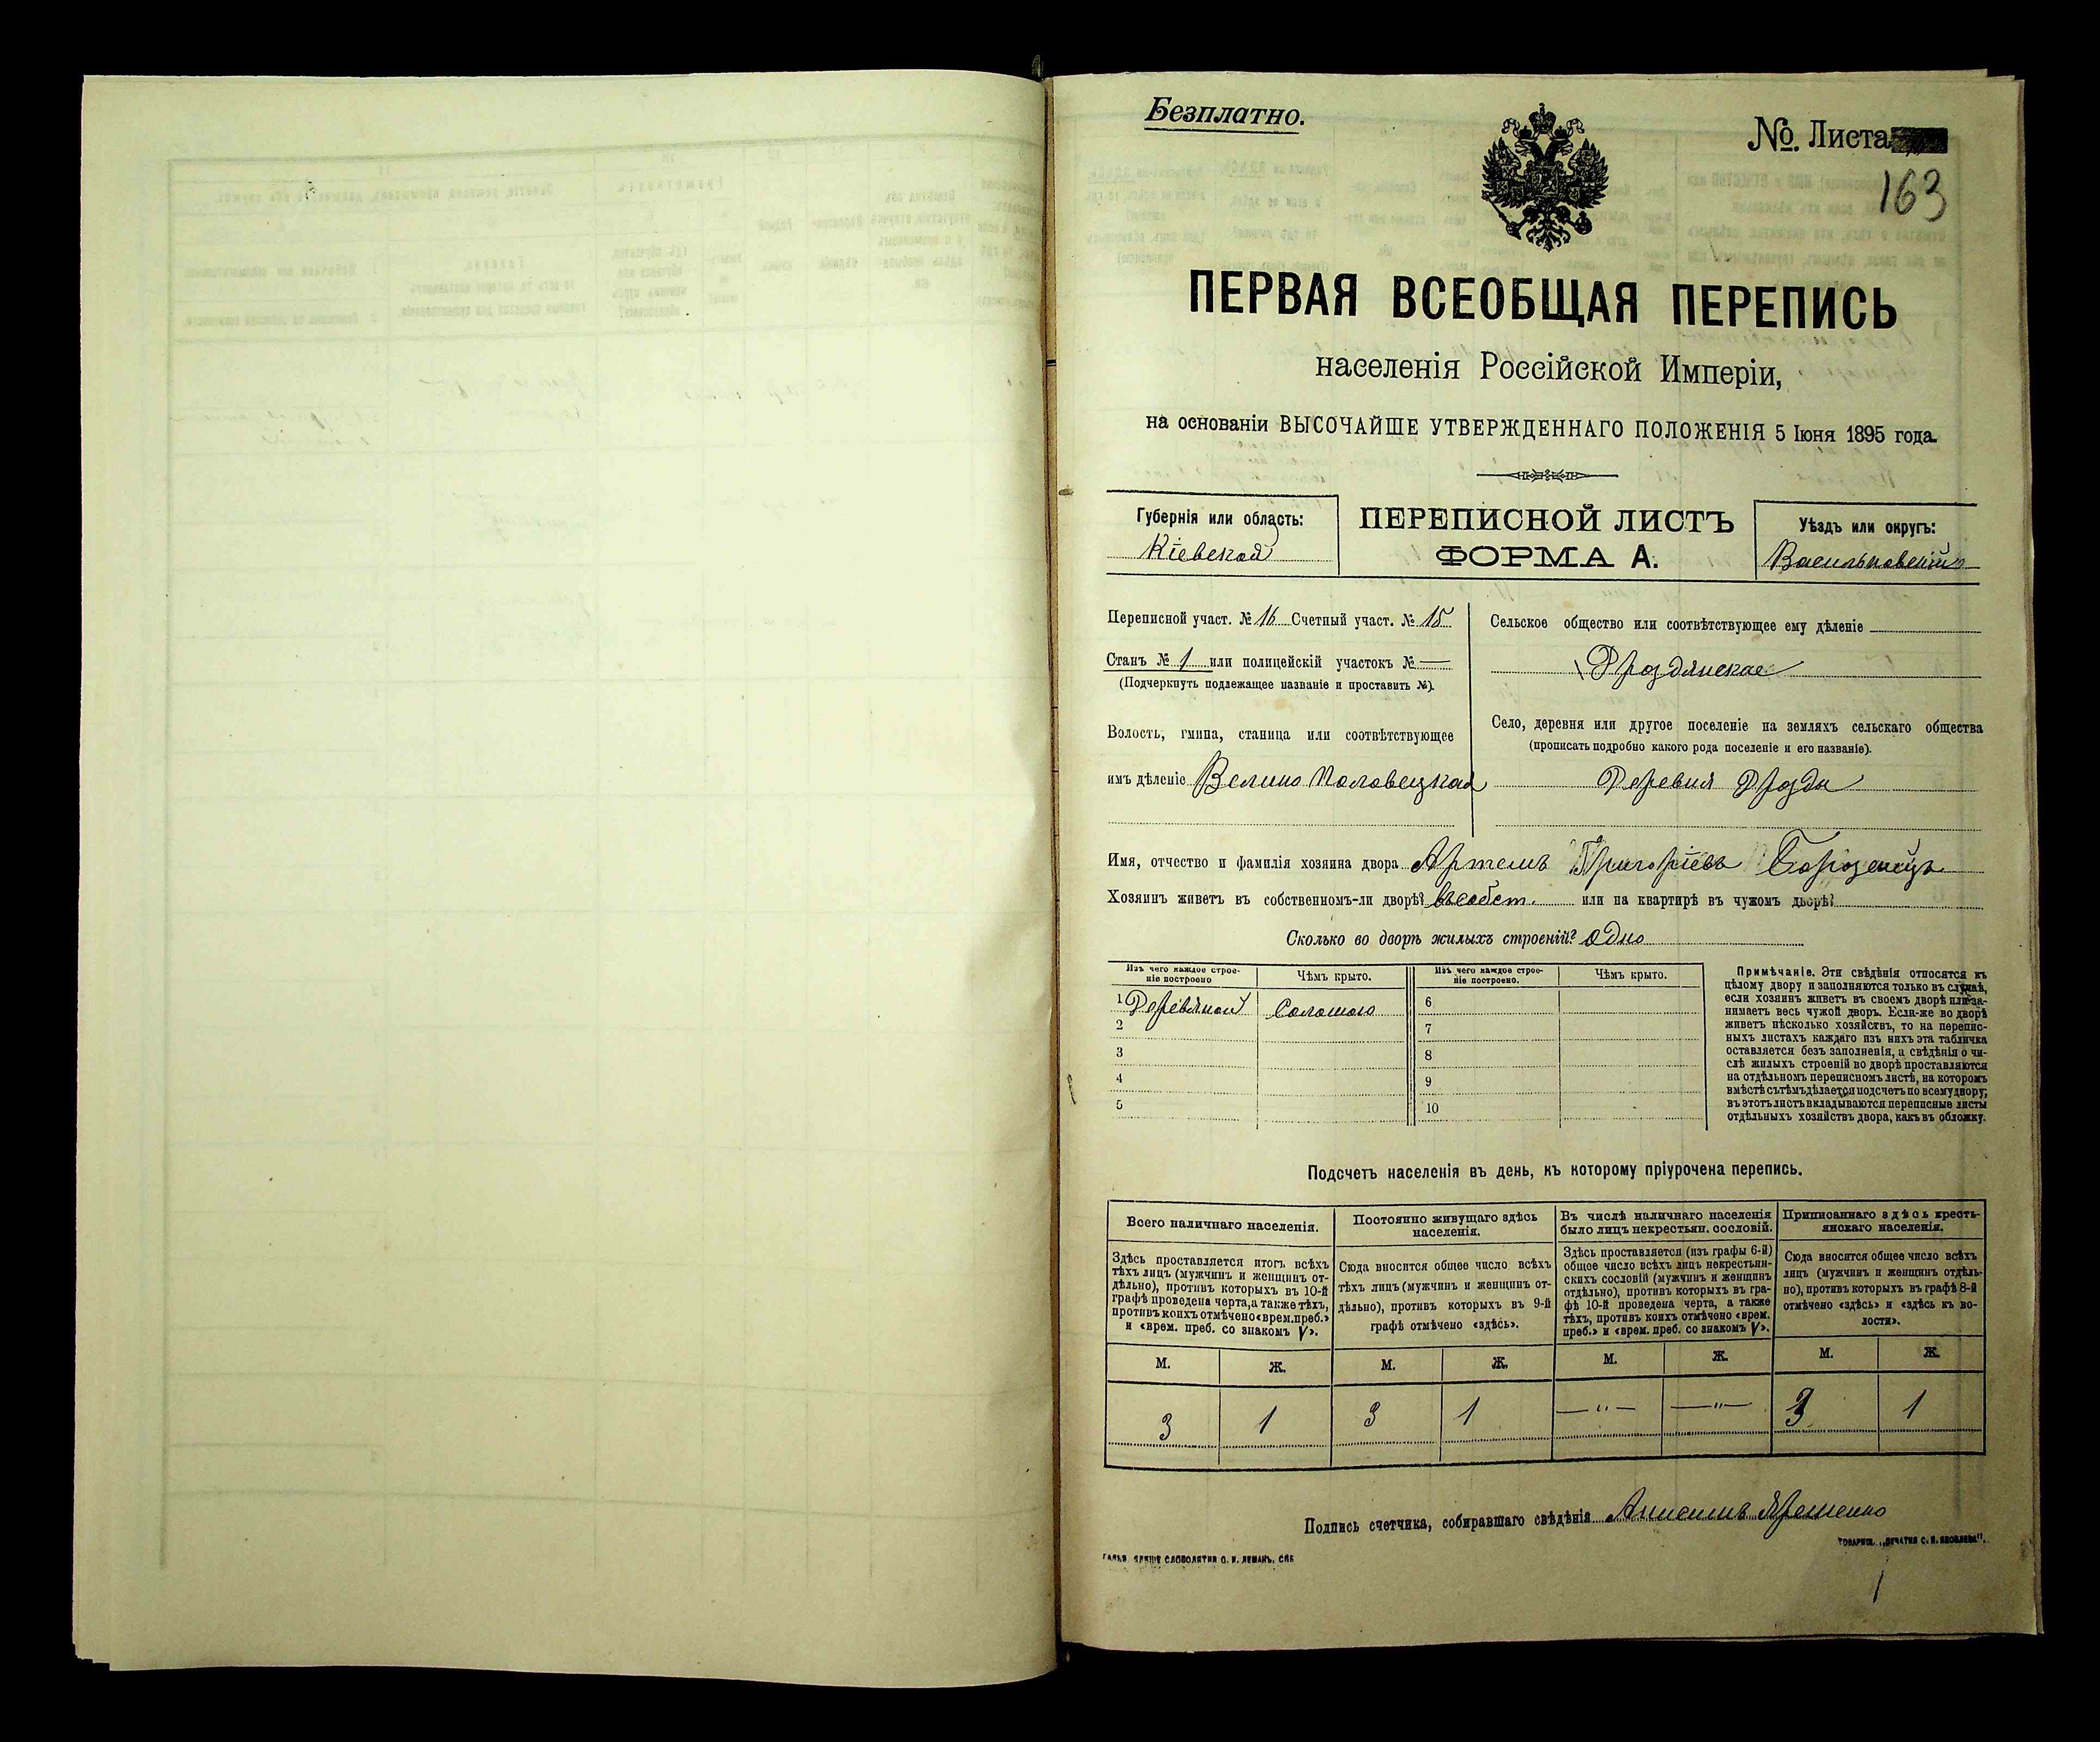 Безплатно.
№. Листа
163
ПЕРВАЯ ВСЕОБЩАЯ ПЕРЕПИСЬ
населенія Россійской Имперіи,
на основаніи ВЫСОЧАЙШЕ УТВЕРЖДЕННАГО ПОЛОЖЕНІЯ 5 Іюня 1895 года.
Губернія или область:
Кіевская
ПЕРЕПИСНОЙ ЛИСТЪ
ФОРМА А.
Уѣздъ или округъ:
Васильковскій
Переписной участ. № 16 Счетный участ. № 15
Станъ № 1 или полицейскій участокъ № —
(Подчеркнуть подлежащее названіе и проставить №).
Волость, гмина, станица или соотвѣтствующее
имъ дѣленіе Велико Половецкая
Сельское общество или соотвѣтствующее ему дѣленіе
Дроздянское
Село, деревня или другое поселеніе на земляхъ сельскаго общества
(прописать подробно какого рода поселеніе и его названіе).
Деревня Дрозды
Имя, отчество и фамилія хозяина двора Артемъ Григоріевъ
Хозяинъ живетъ въ собственномъ-ли дворѣ? въ собст. или на квартирѣ въ чужомъ дворѣ?
Сколько во дворѣ жилыхъ строеній? Одно
Изъ чего каждое строе-
ніе построено
Чѣмъ крыто.
Изъ чего каждое строе-
ніе построено.
Чѣмъ крыто.
1 Соломою
2
3
4
5
6
7
8
9
10
Примѣчаніе. Эти свѣдѣнія относятся къ
цѣлому двору и заполняются только въ случаѣ,
если хозяинъ живетъ въ своемъ дворѣ или за-
нимаетъ весь чужой дворъ. Если-же во дворѣ
живетъ нѣсколько хозяйствъ, то на перепис-
ныхъ листахъ каждаго изъ нихъ эта табличка
оставляется безъ заполненія, а свѣдѣнія о чи-
слѣ жилыхъ строеній во дворѣ проставляются
на отдѣльномъ переписномъ листѣ, на которомъ
вмѣстѣ съ тѣмъ дѣлается подсчетъ по всему двору;
въ этотъ листъ вкладываются переписные листы
отдѣльныхъ хозяйствъ двора, какъ въ обложку.
Подсчетъ населенія въ день, къ которому пріурочена перепись.
Всего наличнаго населенія.
Здѣсь проставляется итогъ всѣхъ
тѣхъ лицъ (мужчинъ и женщинъ от-
дѣльно), противъ которыхъ въ 10-й
графѣ проведена черта, а также тѣхъ,
противъ коихъ отмѣчено «врем. преб.»
и «врем. преб. со знакомъ V».
Постоянно живущаго здѣсь
населенія.
Сюда вносится общее число всѣхъ
тѣхъ лицъ (мужчинъ и женщинъ от-
дѣльно), противъ которыхъ въ 9-й
графѣ отмѣчено «здѣсь».
Въ числѣ наличнаго населенія
было лицъ некрестьян. сословій.
Здѣсь проставляется (изъ графы 6-й)
общее число всѣхъ лицъ некрестьян-
скихъ сословій (мужчинъ и женщинъ
отдѣльно), противъ которыхъ въ гра-
фѣ 10-й проведена черта, а также
тѣхъ, противъ коихъ отмѣчено «врем.
преб.» и «врем. преб. со знакомъ V».
Приписаннаго здѣсь кресть-
янскаго населенія.
Сюда вносится общее число всѣхъ
лицъ (мужчинъ и женщинъ отдѣль-
но), противъ которыхъ въ графѣ 8-й
отмѣчено «здѣсь» и «здѣсь къ во-
лости».
М. Ж. М. Ж. М. Ж. М. Ж.
3 1 3 1 — " — — " — 3 1
Подпись счетчика, собиравшаго свѣдѣнія
СЛОВОЛИТНЯ О. И. ЛЕМАНЪ, СПБ
ТОВАРИЩ. „ПЕЧАТНЯ С. П. ЯКОВЛЕВА".